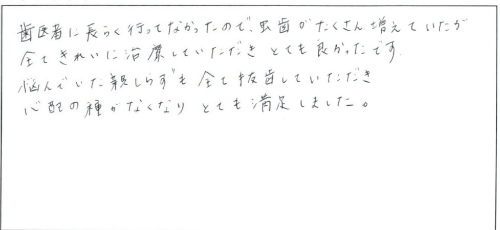 歯医者に長らく行ってなかったので、虫歯がたくさん増えていたが
全てきれいに治療していただきとても良かったです。
悩んでいた親しらずも全て抜歯していただき
心配の種がなくなりとても満足しました。